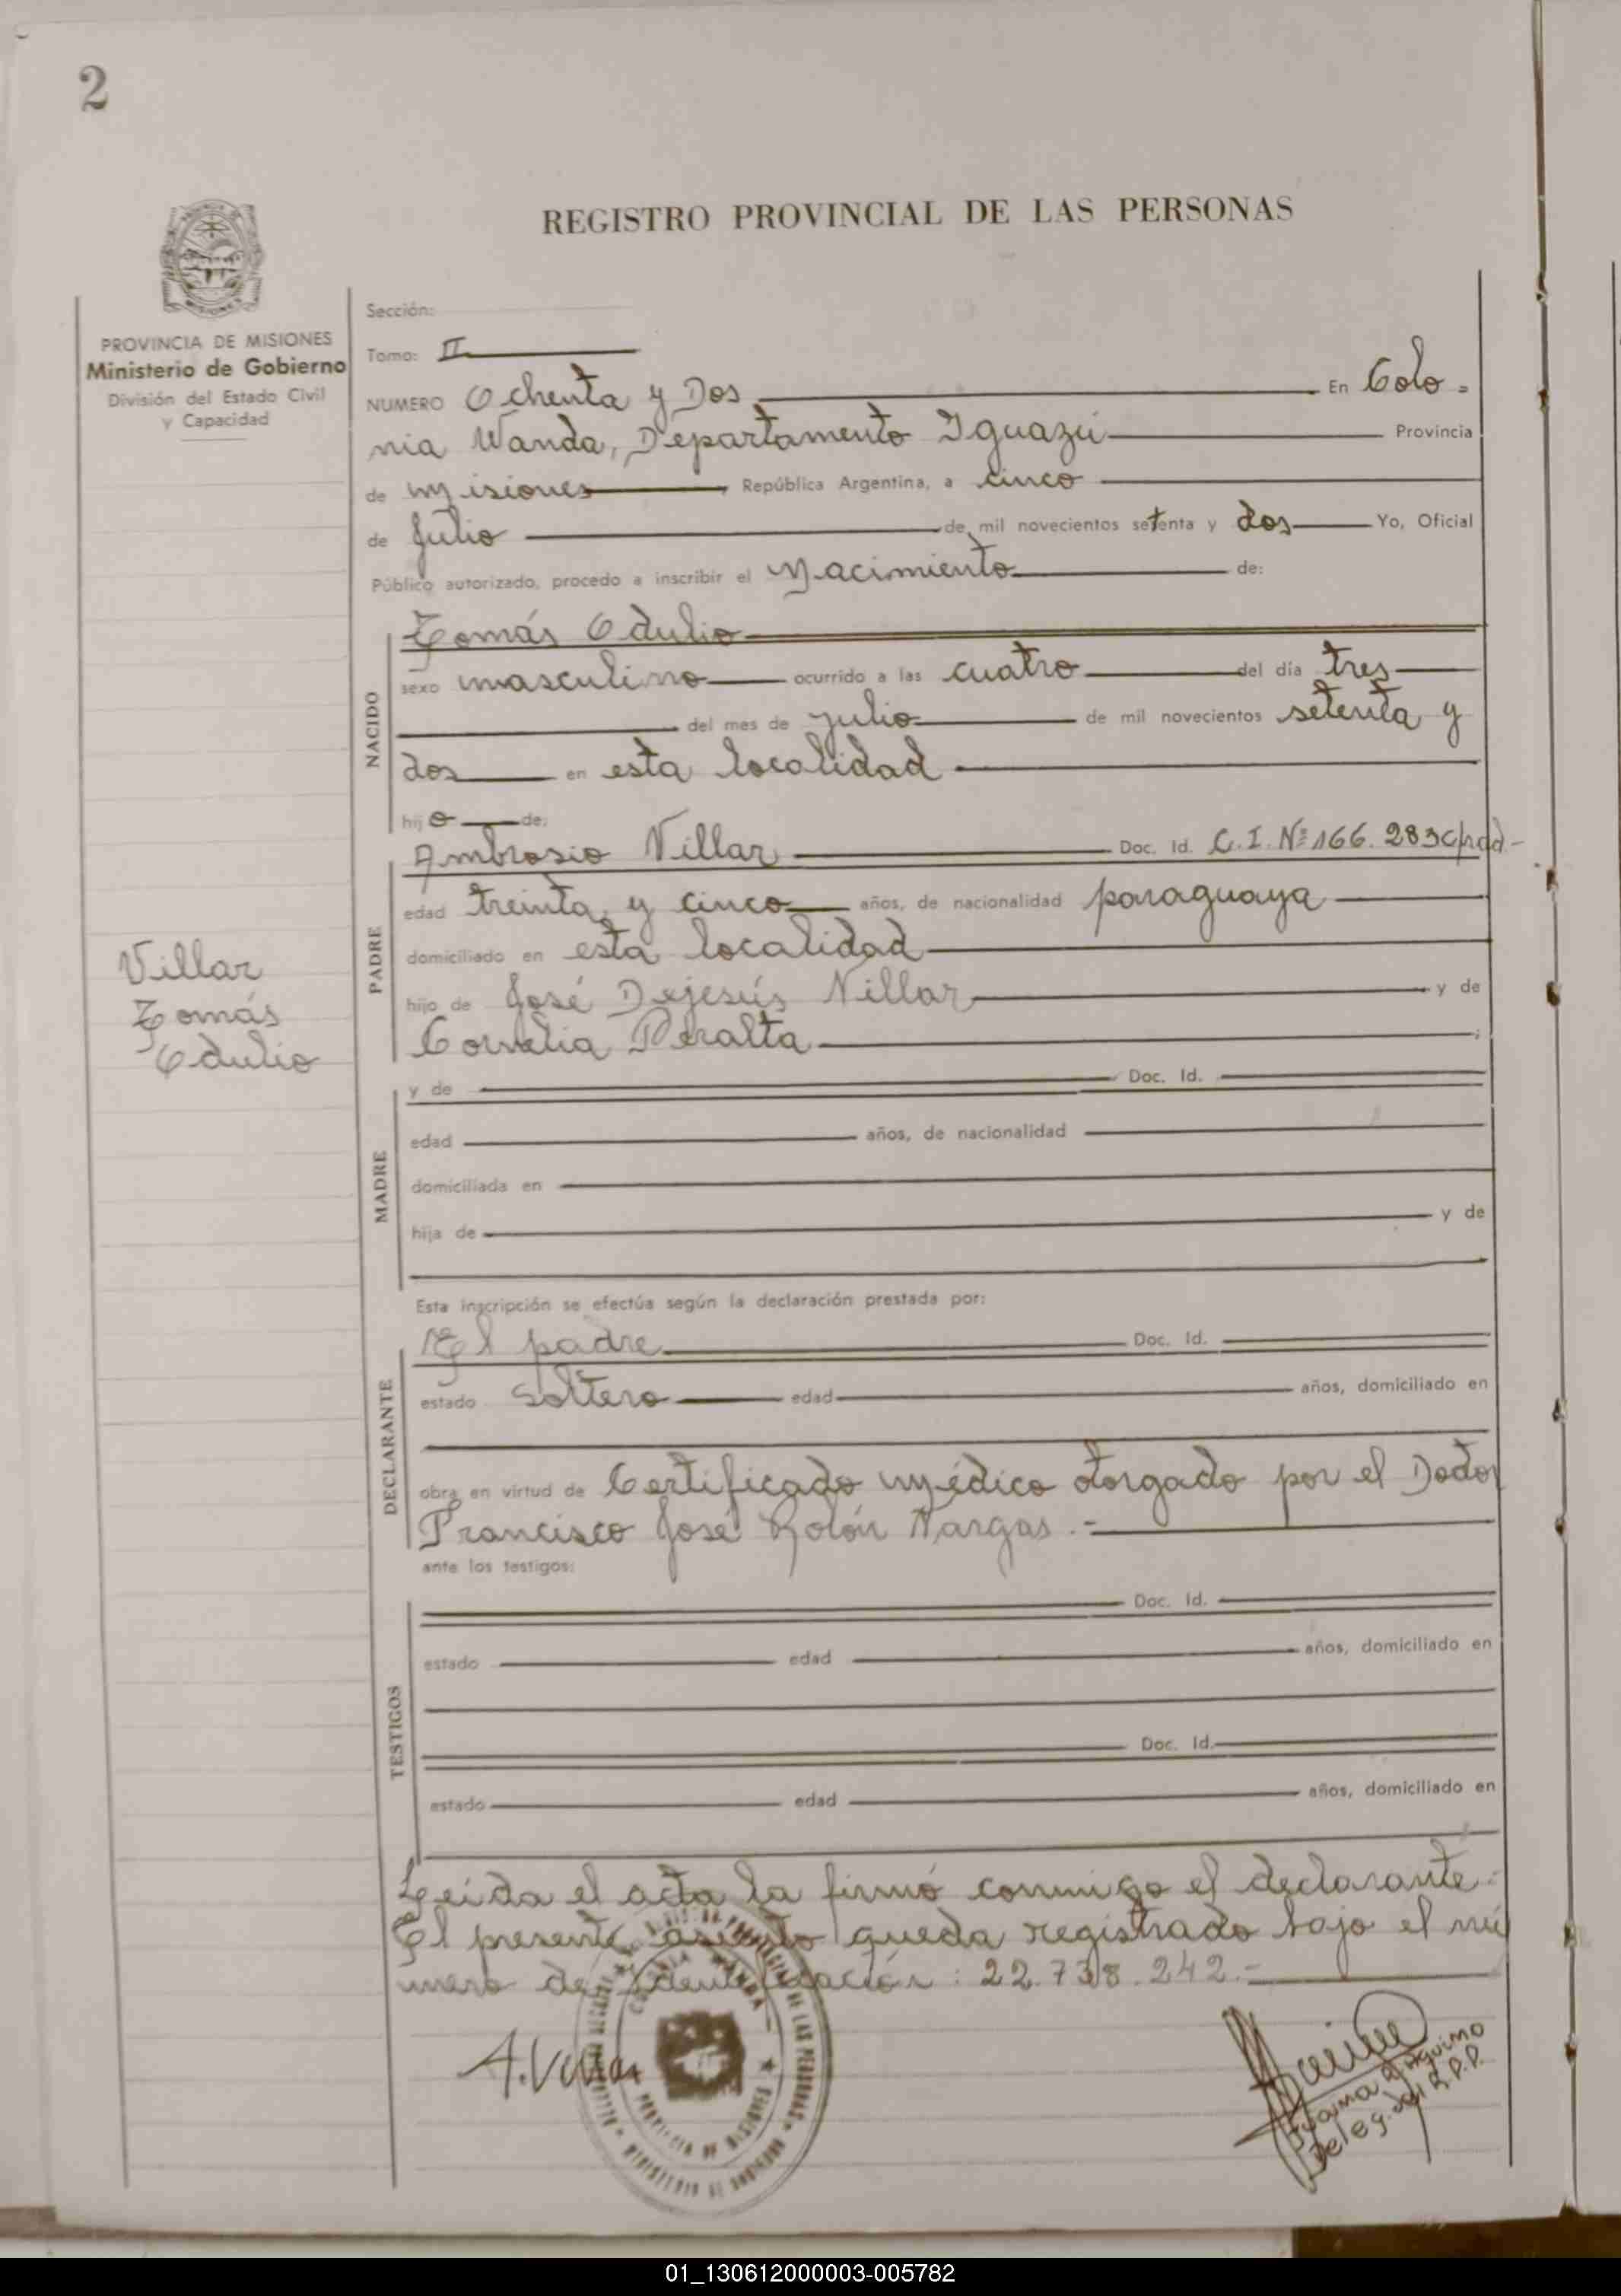 2
REGISTRO PROVINCIAL DE LAS PERSONAS
PROVINCIA DE MISIONES
Ministerio de Gobierno
División del Estado Civil
y Capacidad
Sección:
Tomo: II
NUMERO Ochenta y Dos En Colo=
nia Wanda, Departamento Iguazú Provincia
de Misiones, República Argentina, a cinco
de Julio de mil novecientos setenta y dos Yo, Oficial
Público autorizado, procedo a inscribir el Nacimiento de:
NACIDO
Tomás Odulio
sexo masculino ocurrido a las cuatro del día tres
del mes de julio de mil novecientos setenta y
dos en esta localidad
hijo de:
PADRE
Ambrosio Villar Doc. Id. C.I. Nº 166.283
edad treinta y cinco años, de nacionalidad paraguaya
domiciliado en esta localidad
hijo de José Dejesús Villar y de
Cornelia Peralta;
Villar
Tomás
Odulio
MADRE
y de Doc. Id.
edad años, de nacionalidad
domiciliada en
hija de y de
Esta inscripción se efectúa según la declaración prestada por:
DECLARANTE
El padre Doc. Id.
estado Soltero edad años, domiciliado en
obra en virtud de Certificado médico otorgado por el Doctor
Francisco José Rolón Vargas.-
ante los testigos:
TESTIGOS
Doc. Id.
estado edad años, domiciliado en
Doc. Id.
estado edad años, domiciliado en
Leída el acta la firmó conmigo el declarante.-
El presente asiento queda registrado bajo el nú
mero de Identificación: 22.738.242.-
A. Villar
Deleg. del R.P.P.
01_130612000003-005782